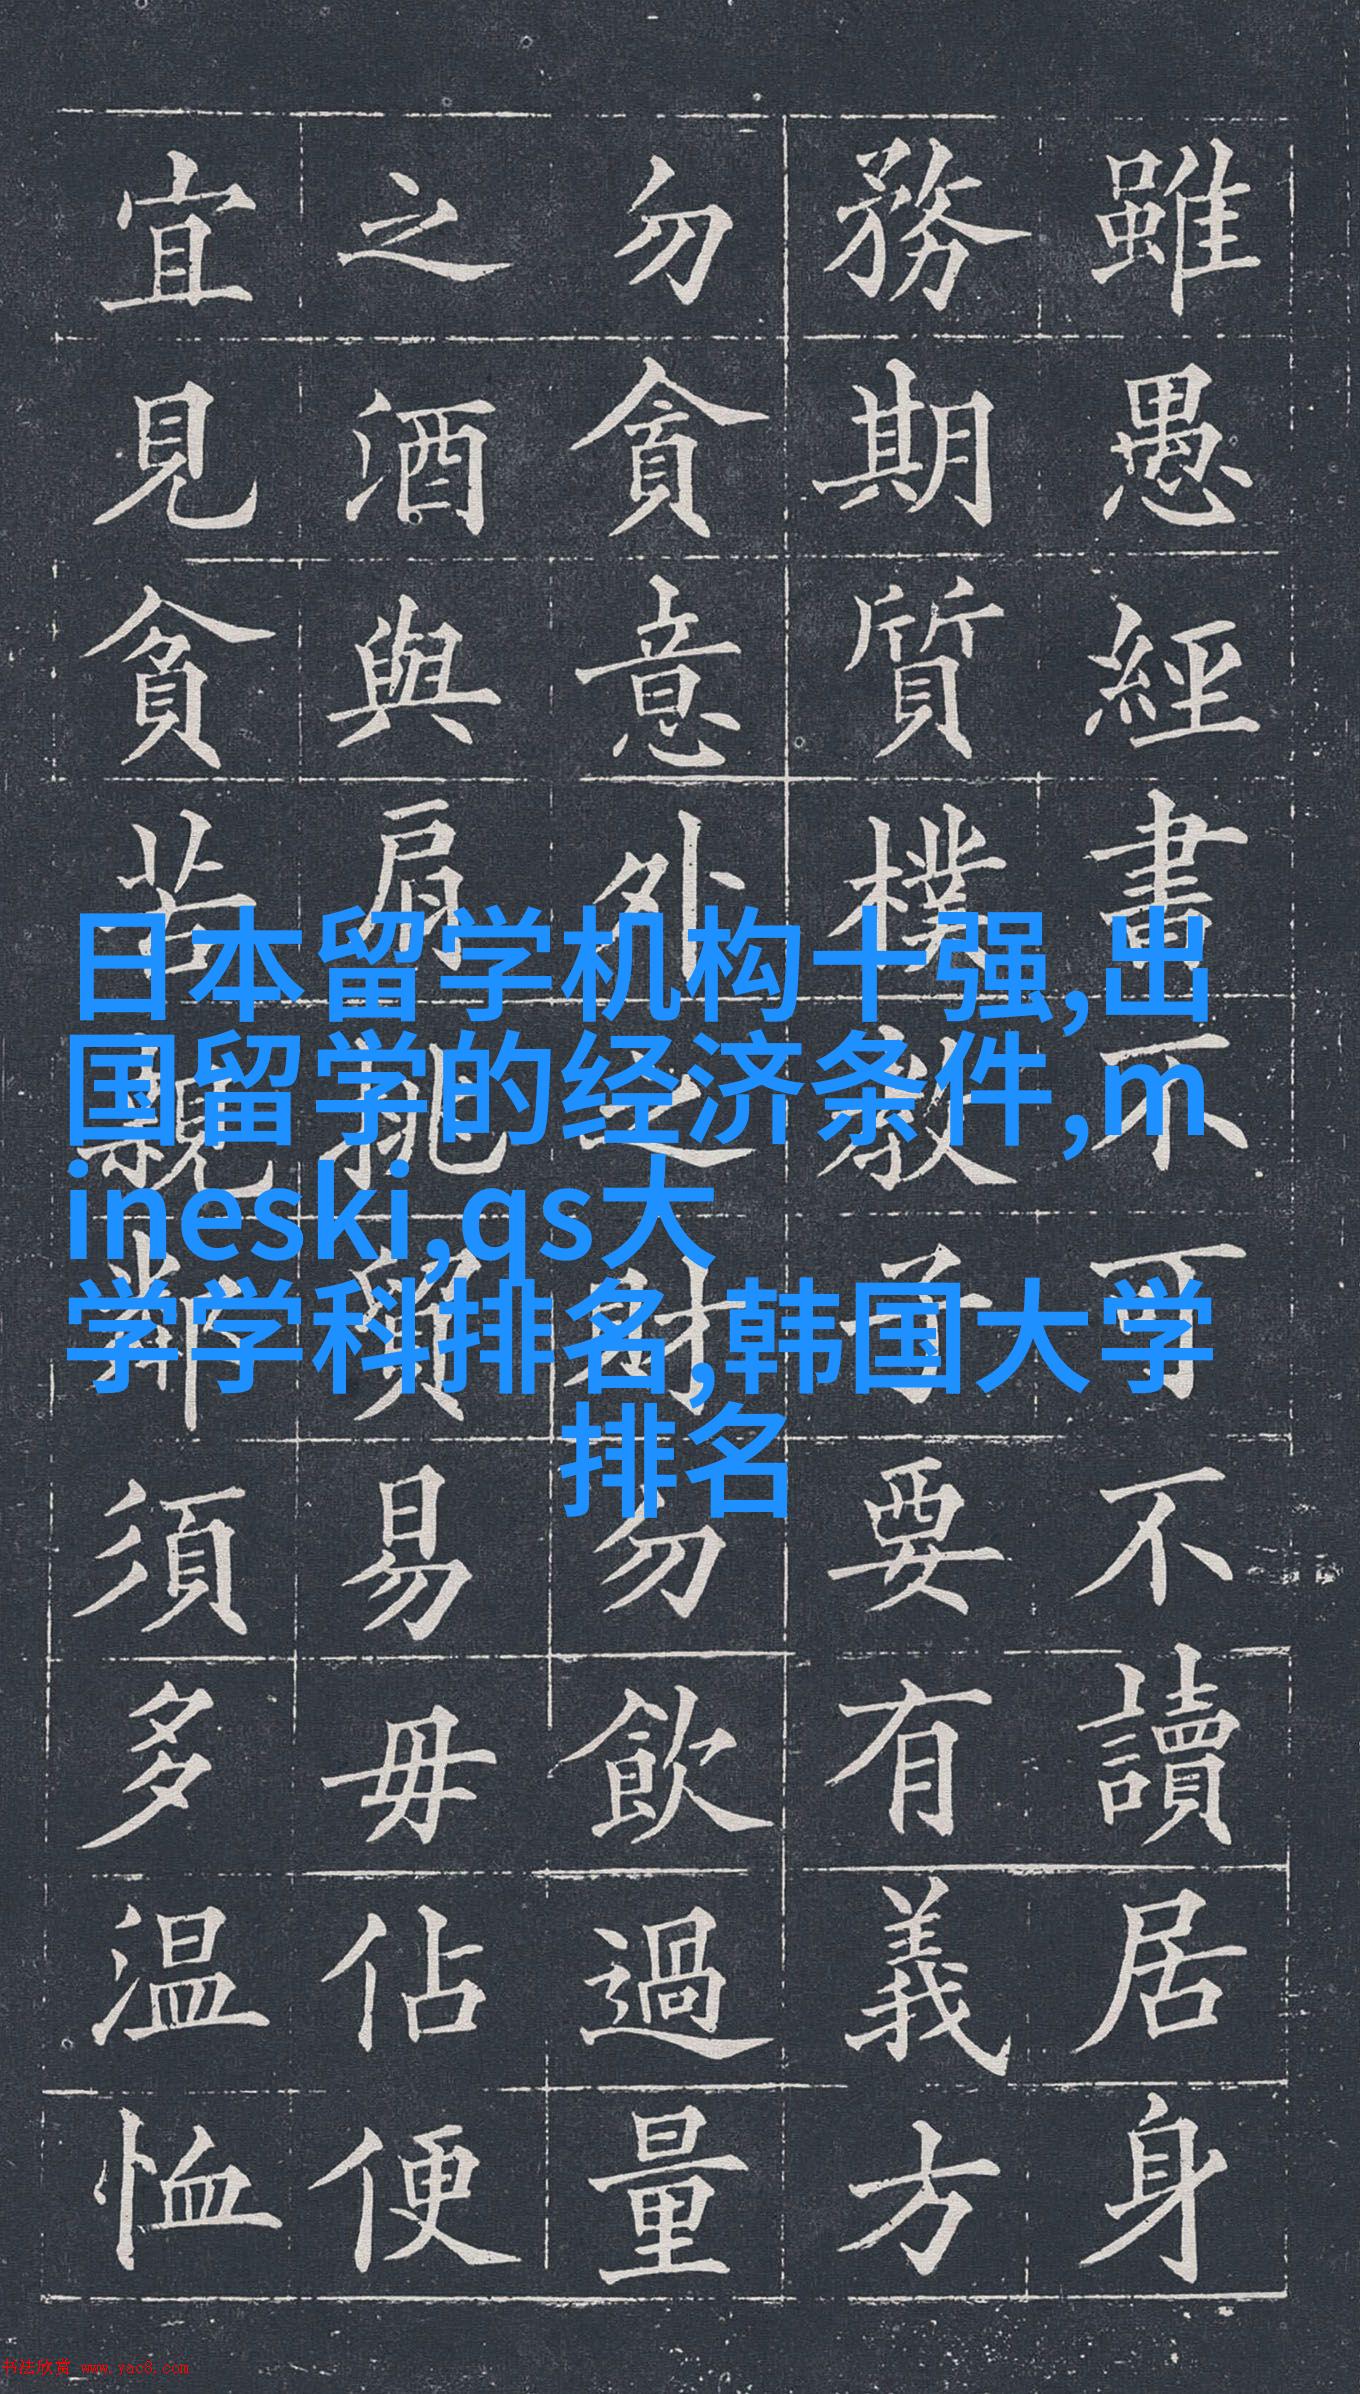 雖愚經書不可不讀居身
務期質樸教子要有義方
勿貪意外之財勿飲過量
之酒與肩挑貿易毋佔便
宜見貧苦親鄰須多溫恤
日本留学机构十强,出
国留学的经济条件,m
ineski,qs大
学学科排名,韩国大学
排名
书法欣赏 www.yac8.com